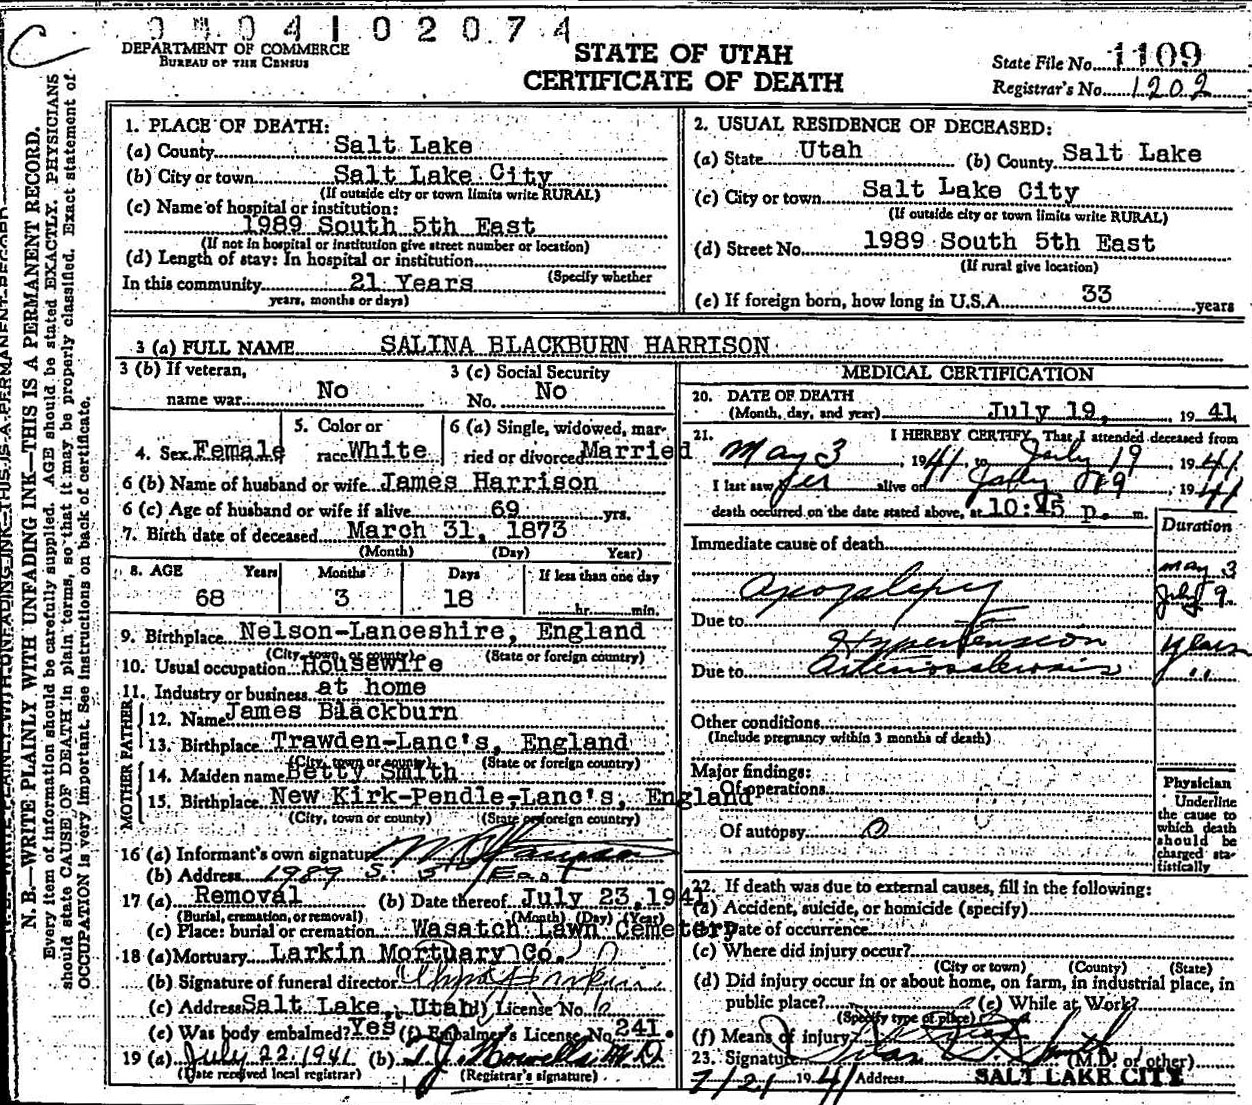 0 4 1 0 2 0 7 4
DEPARTMENT OF COMMERCE
BUREAU OF THE CENSUS
STATE OF UTAH
CERTIFICATE OF DEATH
State File No. 1109
Registrar's No. 1202
N. B.—WRITE PLAINLY WITH UNFADING INK—THIS IS A PERMANENT RECORD.
Every item of information should be carefully supplied. AGE should be stated EXACTLY. PHYSICIANS
should state CAUSE OF DEATH in plain terms, so that it may be properly classified. Exact statement of
OCCUPATION is very important. See instructions on back of certificate.
1. PLACE OF DEATH:
(a) County Salt Lake
(b) City or town Salt Lake City
(If outside city or town limits write RURAL)
(c) Name of hospital or institution:
1989 South 5th East
(If not in hospital or institution give street number or location)
(d) Length of stay: In hospital or institution
(Specify whether
In this community 21 Years
years, months or days)
2. USUAL RESIDENCE OF DECEASED:
(a) State Utah (b) County Salt Lake
(c) City or town Salt Lake City
(If outside city or town limits write RURAL)
(d) Street No. 1989 South 5th East
(If rural give location)
(e) If foreign born, how long in U.S.A. 33 years
3 (a) FULL NAME SALINA BLACKBURN HARRISON
3 (b) If veteran, name war: No
3 (c) Social Security No. No
4. Sex Female
5. Color or race White
6 (a) Single, widowed, married or divorced Married
6 (b) Name of husband or wife James Harrison
6 (c) Age of husband or wife if alive 69 yrs.
7. Birth date of deceased March 31, 1873
(Month) (Day) Year)
8. AGE Years Months Days If less than one day
68 3 18 hr. min.
9. Birthplace Nelson-Lanceshire, England
(City, town, or county) (State or foreign country)
10. Usual occupation Housewife
11. Industry or business at home
FATHER
12. Name James Blackburn
13. Birthplace Trawden-Lanc's, England
(City, town or county) (State or foreign country)
MOTHER
14. Maiden name Betty Smith
15. Birthplace New Kirk-Pendle-Lanc's, England
(City, town or county) (State or foreign country)
16 (a) Informant's own signature
(b) Address 1989 S. 5th East
17 (a) Removal (b) Date thereof July 23, 1941
(Burial, cremation, or removal) (Month) (Day) (Year)
(c) Place: burial or cremation Wasatch Lawn Cemetery
18 (a) Mortuary Larkin Mortuary Co.
(b) Signature of funeral director
(c) Address Salt Lake, Utah License No.
(e) Was body embalmed? Yes (f) Embalmer's License No. 241.
19 (a) July 22 1941 (b)
(Date received local registrar) (Registrar's signature)
MEDICAL CERTIFICATION
20. DATE OF DEATH
(Month, day, and year) July 19, 1941
21. I HEREBY CERTIFY, That I attended deceased from
May 3, 1941, to July 19, 1941
I last saw her alive on July 19, 1941
death occurred on the date stated above, at 10:45 p. m.
Duration
Immediate cause of death
Apoplexy May 3 July 9
Due to Hypertension years
Due to Arteriosclerosis "
Other conditions
(Include pregnancy within 3 months of death)
Major findings:
Of operations
Of autopsy 0
Physician
Underline
the cause to
which death
should be
charged sta-
tistically
22. If death was due to external causes, fill in the following:
(a) Accident, suicide, or homicide (specify)
(b) Date of occurrence
(c) Where did injury occur?
(City or town) (County) (State)
(d) Did injury occur in or about home, on farm, in industrial place, in
public place? (e) While at Work?
(Specify type of place)
(f) Means of injury
23. Signature Silas Smith (M.D. or other)
7/21 1941 Address SALT LAKE CITY